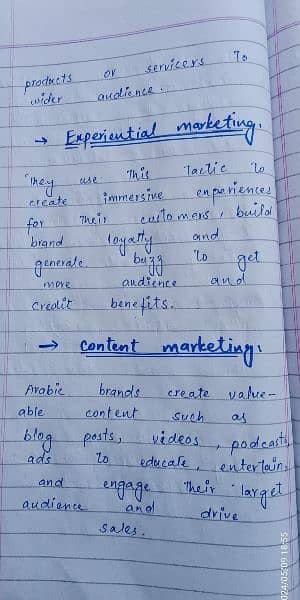 products or servicers To
wider audience.
→ Experiential marketing.
They use This Tactic To
create immersive enperiences
for Their customers, build
brand loyalty and
generate buzz To get
more audience and
credit benefits.
→ content marketing.
Arabic brands create value-
able content such as
blog posts, videos, podcasts,
ads To educate, entertain,
and engage Their Target
audience and drive
sales.
2024/05/09 18:55